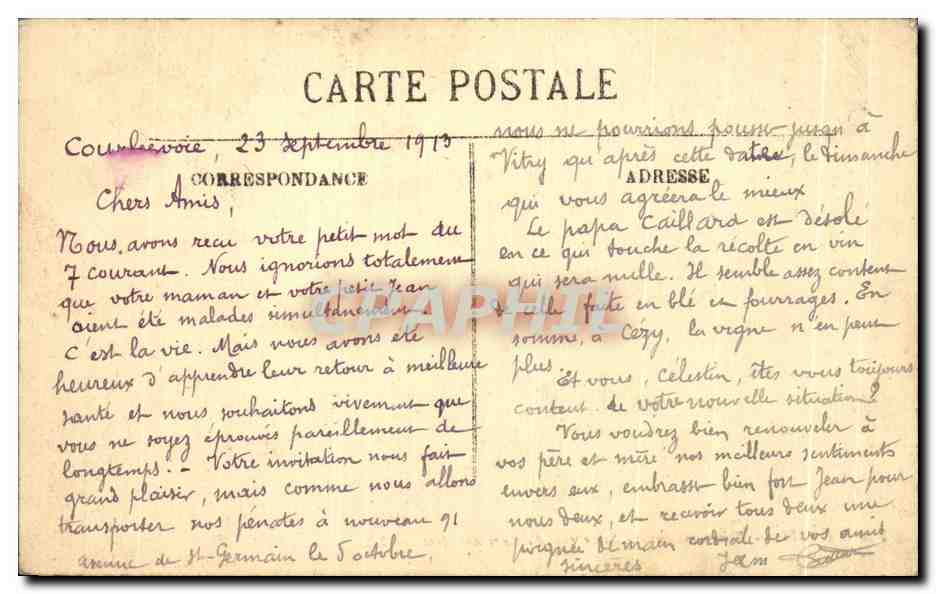 CARTE POSTALE
CORRESPONDANCE
Courbevoie, 23 Septembre 1913
Chers Amis,
Nous avons reçu votre petit mot du
7 courant. Nous ignorions totalement
que votre maman et votre petit Jean
aient été malades simultanément.
C'est la vie. Mais nous avons été
heureux d'apprendre leur retour à meilleure
santé et nous souhaitons vivement que
vous ne soyez éprouvés pareillement de
longtemps. - Votre invitation nous fait
grand plaisir, mais comme nous allons
transporter nos pénates à nouveau 91
avenue de St-Germain le 5 octobre,
ADRESSE
nous ne pourrions pousser jusqu'à
Vitry qu'après cette date, le dimanche
qui vous agréera le mieux
Le papa Caillard est désolé
en ce qui touche la récolte en vin
qui sera nulle. Il semble assez content
de celle faite en blé et fourrages. En
somme, à Cézy, la vigne n'en peut
plus.
Et vous, Célestin, êtes vous toujours
content de votre nouvelle situation?
Vous voudrez bien renouveler à
vos père et mère nos meilleurs sentiments
envers eux, embrasser bien fort Jean pour
nous deux, et recevoir tous deux une
poignée de main cordiale de vos amis
sincères
CPAPHIL